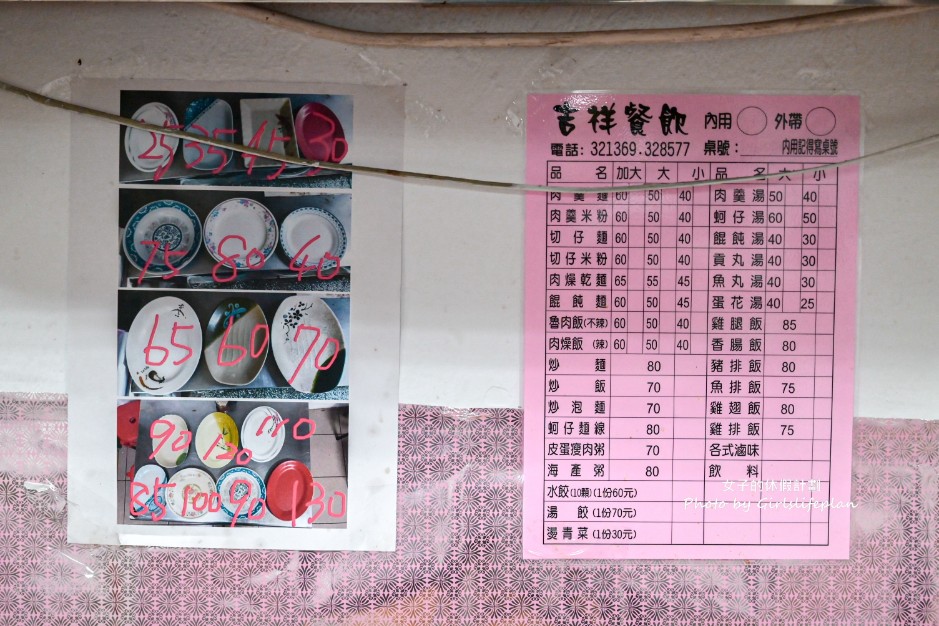 25 35 45 30
75 80 40
65 60 70
90 120 110
35 100 90 130
吉祥餐飲 內用 外帶
電話: 321369.328577 桌號: 內用記得寫桌號
品名 加大 大 小 品名 大 小
肉羹麵 60 50 40 肉羹湯 50 40
肉羹米粉 60 50 40 蚵仔湯 60 50
切仔麵 60 50 40 餛飩湯 40 30
切仔米粉 60 50 40 貢丸湯 40 30
肉燥乾麵 65 55 45 魚丸湯 40 30
餛飩麵 60 50 45 蛋花湯 40 25
魯肉飯(不辣) 60 50 40 雞腿飯 85
肉燥飯 (辣) 60 50 40 香腸飯 80
炒麵 80 豬排飯 80
炒飯 70 魚排飯 75
炒泡麵 70 雞翅飯 80
蚵仔麵線 80 雞排飯 75
皮蛋瘦肉粥 70 各式滷味
海產粥 80 飲料
水餃(10顆)(1份60元)
湯餃 (1份70元)
燙青菜 (1份30元)
女子的休假計劃
Photo by Girlslifeplan